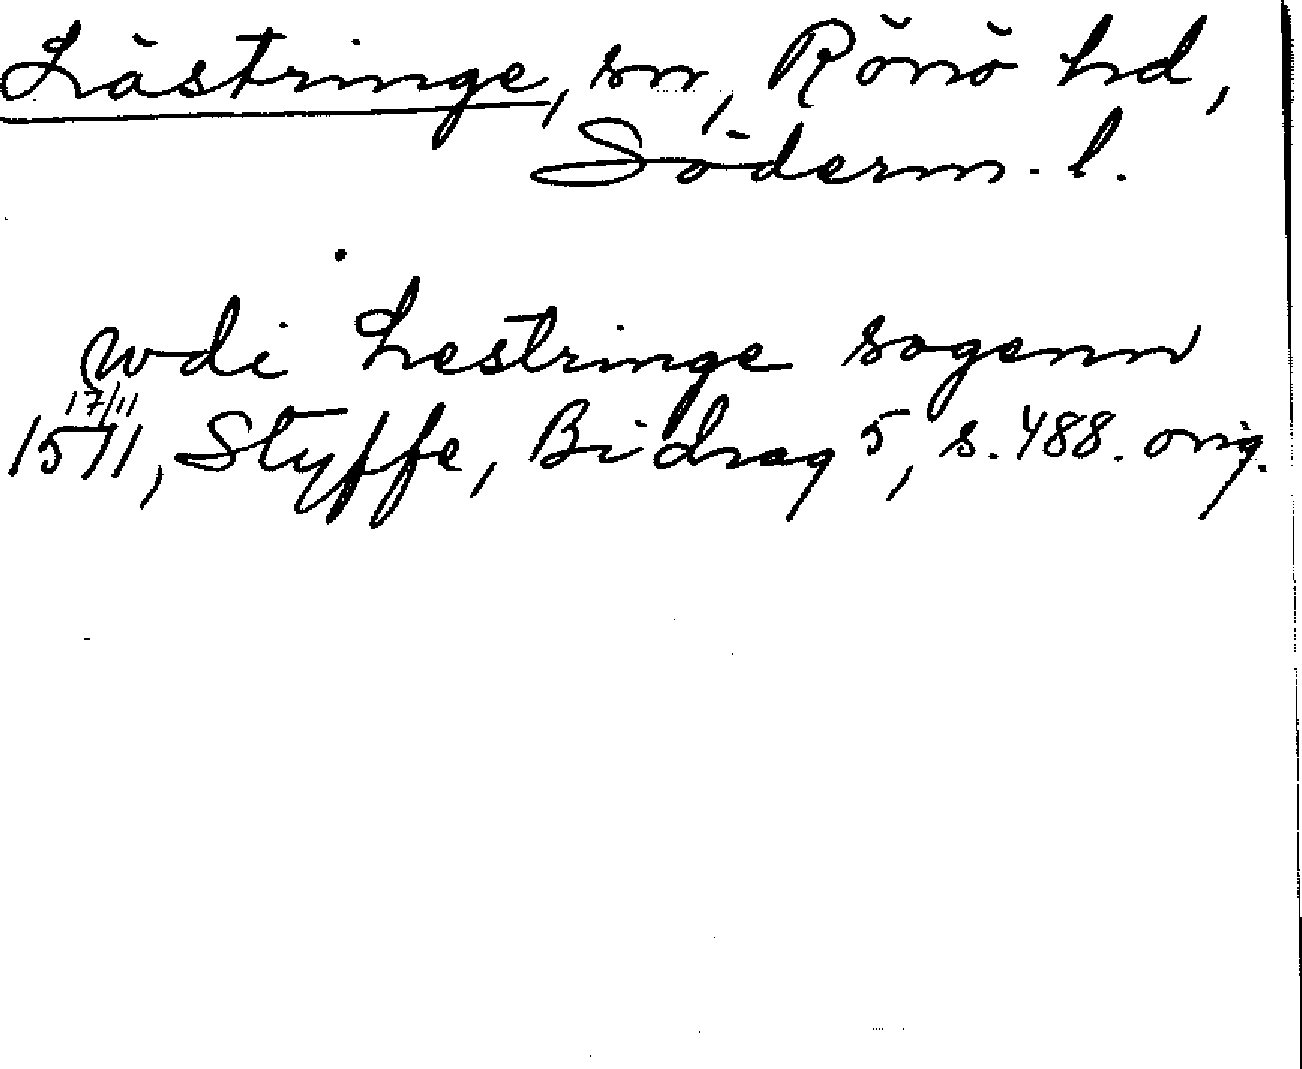 Lästringe, sn, Rönö hd,
Söderm. l.
wdi Lestringe sogenn
17/11
1511, Styffe, Bidrag 5, s. 488. orig.